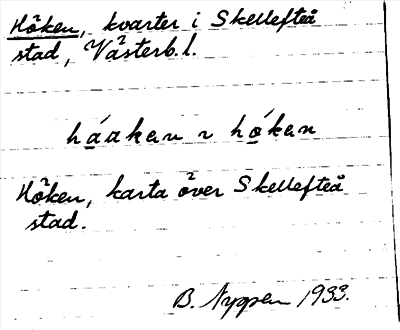 Höken, kvarter i Skellefteå
stad, Västerb.l.
háakan ~ hókan
Höken, karta över Skellefteå
stad.
B. Nygren 1933.